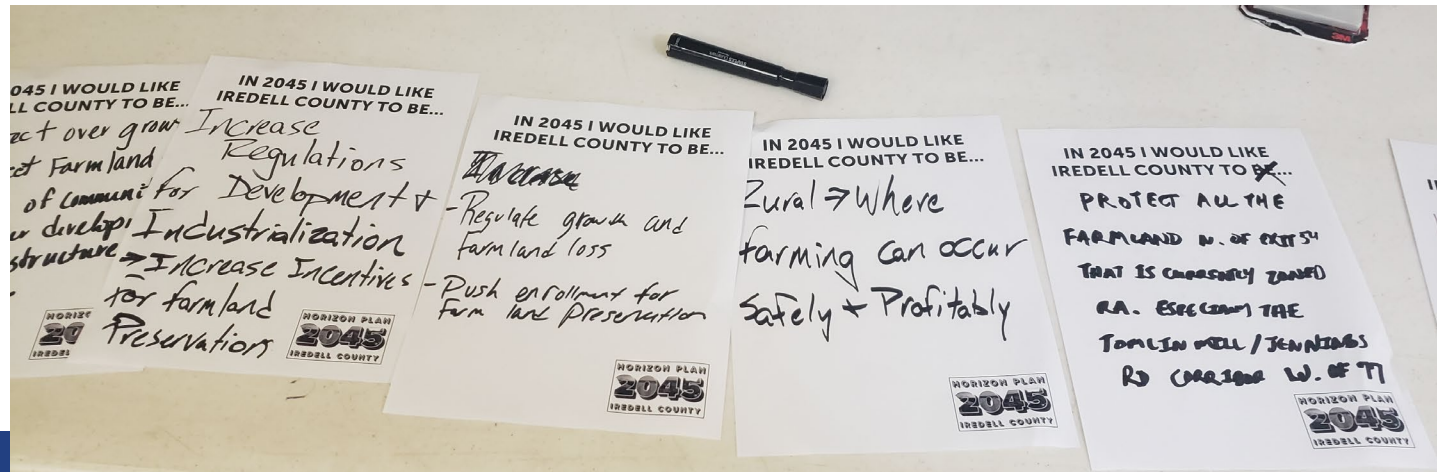 045 I WOULD LIKE
LL COUNTY TO BE...
ect over grow
ct Farmland
of Communi
r develop
structure
HORIZ
20
IREDEL
IN 2045 I WOULD LIKE
IREDELL COUNTY TO BE...
Increase
Regulations
for Development +
Industrialization
→ Increase Incentives
for farmland
Preservations
HORIZON PLAN
2045
IREDELL COUNTY
IN 2045 I WOULD LIKE
IREDELL COUNTY TO BE...
- Regulate growth and
farmland loss
- Push enrollment for
farm land preservation
HORIZON PLAN
2045
IREDELL COUNTY
IN 2045 I WOULD LIKE
IREDELL COUNTY TO BE...
Rural → Where
farming can occur
Safely + Profitably
HORIZON PLAN
2045
IREDELL COUNTY
IN 2045 I WOULD LIKE
IREDELL COUNTY TO BE...
PROTECT ALL THE
FARMLAND N. OF EXIT 54
THAT IS CURRENTLY ZONED
RA. ESPECIALLY THE
TOMLIN MILL / JENNINGS
RD CORRIDOR W. OF 77
HORIZON PLAN
2045
IREDELL COUNTY
3M